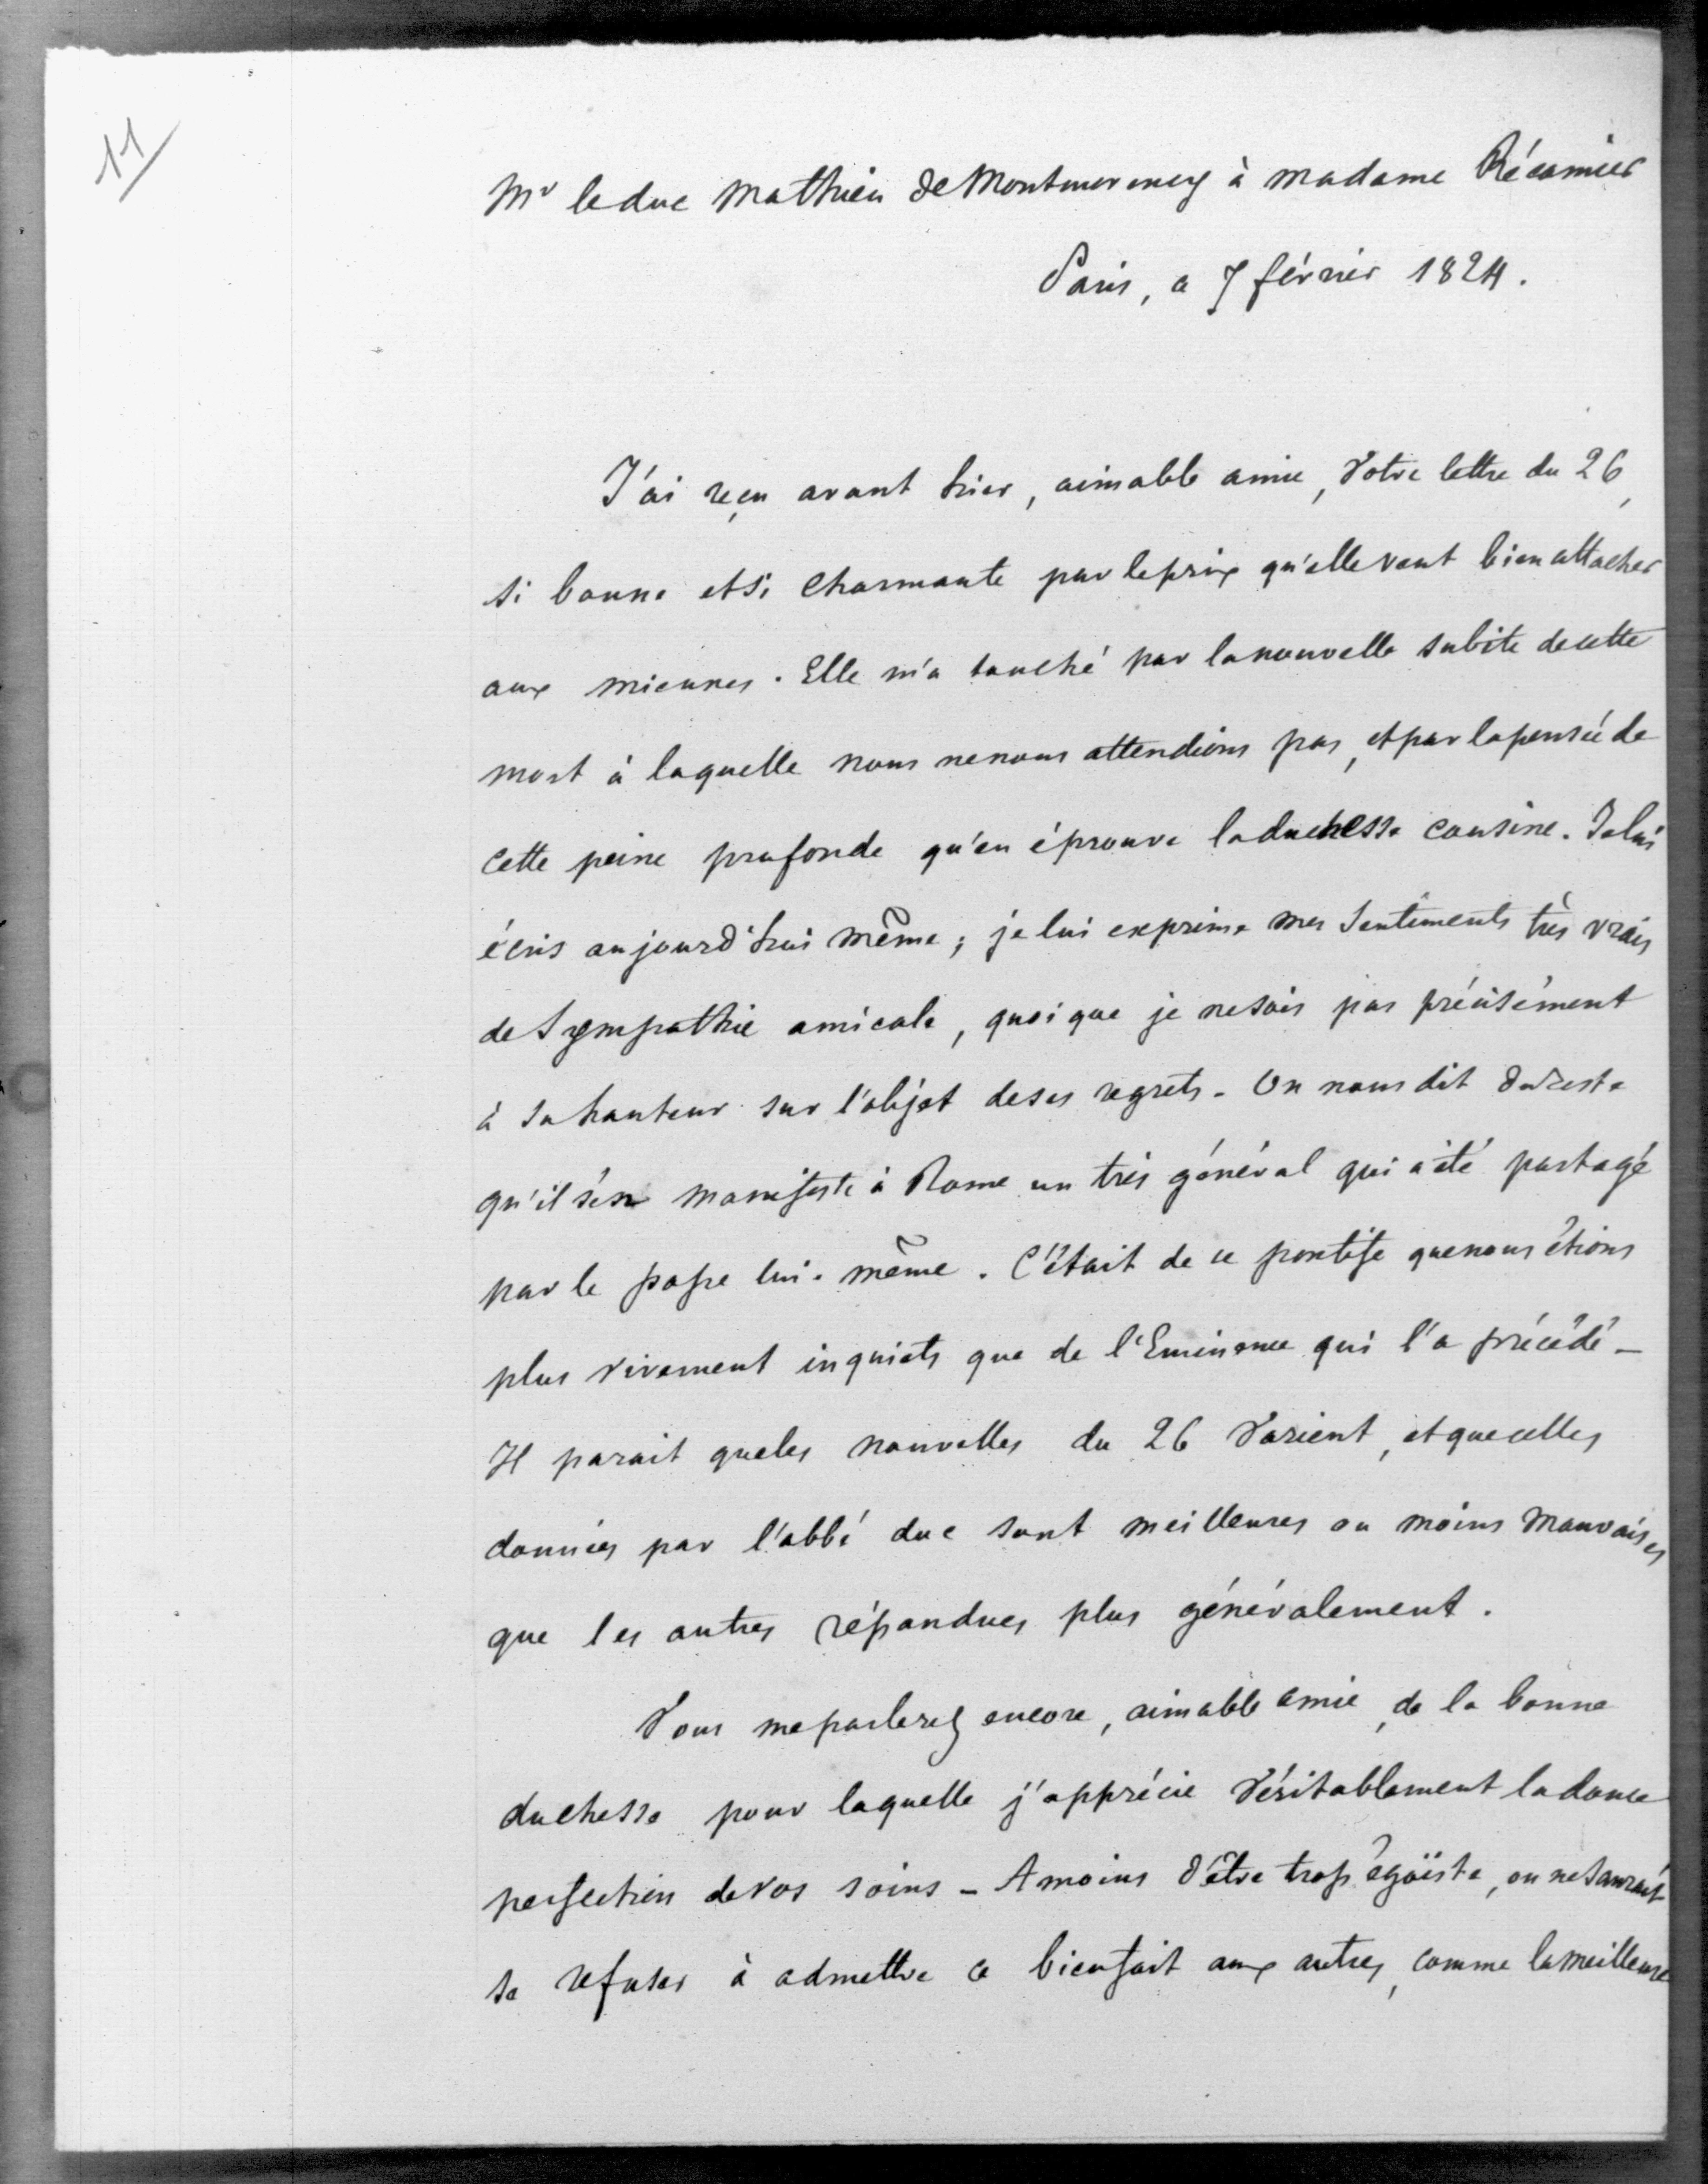 11
Mr le duc Mathieu de Montmorency à madame Récamier
Paris, ce 7 février 1824.
J'ai reçu avant hier, aimable amie, votre lettre du 26,
si bonne et si charmante par le prix qu'elle veut bien attacher
aux miennes. Elle m'a touché par la nouvelle subite de cette
mort à laquelle nous ne nous attendions pas, et par la pensée de
cette peine profonde qu'en éprouve la duchesse cousine. Je lui
écris aujourd'hui même ; je lui exprime mes sentiments très vrais
de sympathie amicale, quoique je ne sois pas précisément
à sa hauteur sur l'objet de ses regrets - On nous dit du reste
qu'il s'en manifeste à Rome un très général qui a été partagé
par le pape lui-même. C'était de ce pontife que nous étions
plus vivement inquiets que de l'Eminence qui l'a précédé -
Il parait que les nouvelles du 26 varient, et que celles
données par l'abbé duc sont meilleures ou moins mauvaises
que les autres répandues plus généralement.
Vous me parlerez encore, aimable amie, de la bonne
duchesse pour laquelle j'apprécie véritablement la douce
perfection de vos soins - A moins d'être trop égoïste, on ne saurait
se refuser à admettre ce bienfait aux autres, comme la meilleure